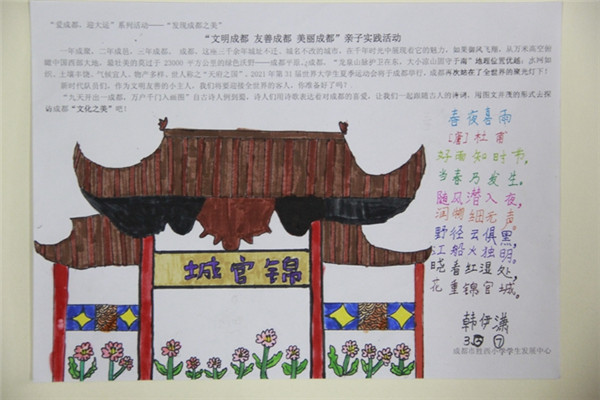 “爱成都、迎大运”系列活动——“发现成都之美”
“文明成都 友善成都 美丽成都”亲子实践活动
一年成聚，二年成邑，三年成都。成都，这座三千余年城址不迁、城名不改的城市，在千年时光中展现着它的魅力。如果御风飞翔，从万米高空俯
瞰中国西部大地，最壮美的莫过于 23000 平方公里的绿色沃野——成都平原。“龙泉山脉护卫在东，大小凉山固守于南”地理位置优越。水网如
织、土壤丰饶、气候宜人、物产多样，世人称之“天府之国”。2021 年第 31 届世界大学生夏季运动会将于成都举行，成都再次站在了全世界的聚光灯下！
新时代队员们，作为文明友善的小主人，我们将要迎接全世界的客人，你准备好了吗？
“九天开出一成都，万户千门入画图”自古诗人例到蜀，诗人们用诗歌表达着对成都的喜爱，让我们一起跟随古人的诗词，用图文并茂的形式去探
访成都“文化之美”吧！
春夜喜雨
[唐]杜甫
好雨知时节，
当春乃发生。
随风潜入夜，
润物细无声。
野径云俱黑，
江船火独明。
晓看红湿处，
花重锦官城。
城官锦
韩伊潇
3.6 ⑦
成都市胜西小学学生发展中心